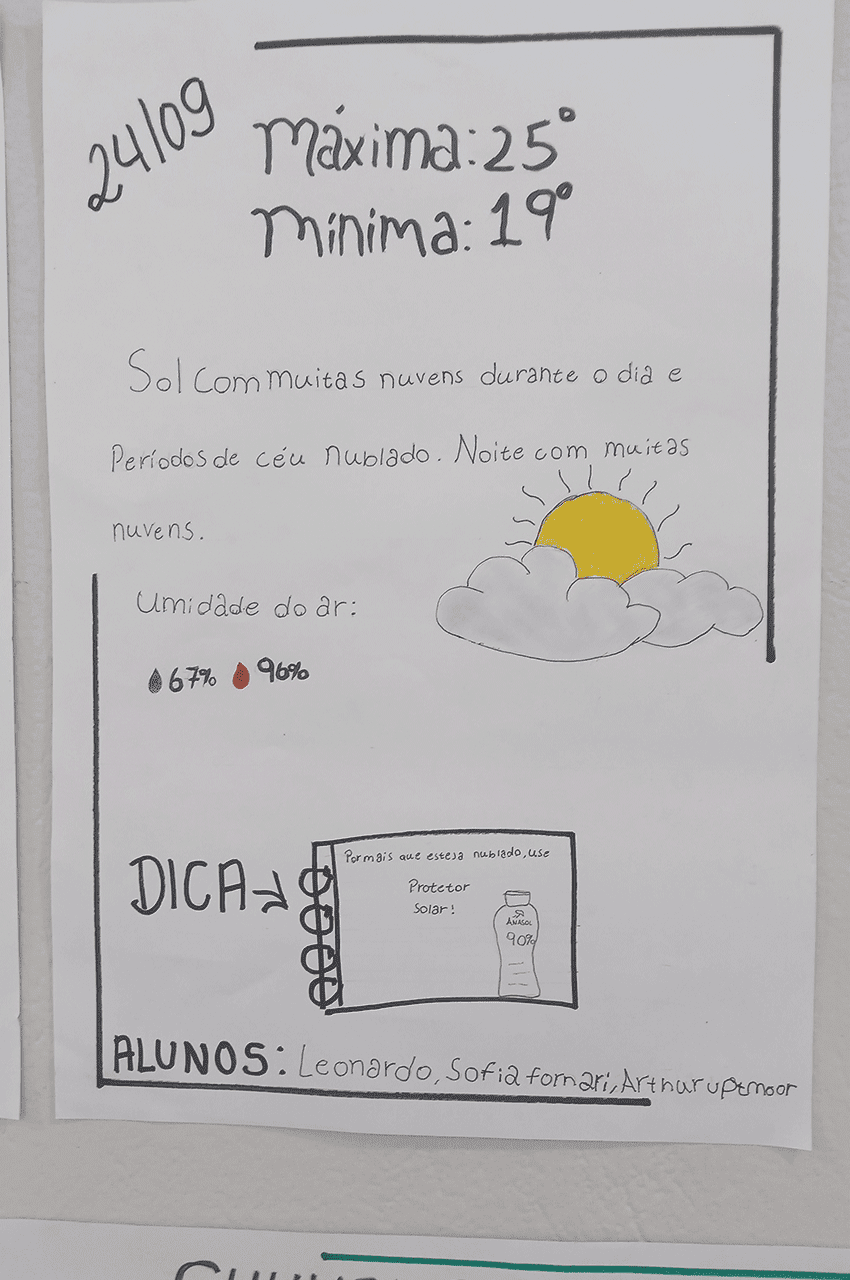 24/09
Máxima: 25°
Mínima: 19°
Sol com muitas nuvens durante o dia e
Períodos de céu nublado. Noite com muitas
nuvens.
Umidade do ar:
67% 96%
DICA
Por mais que esteja nublado, use
Protetor
Solar!
ANASOL
90%
ALUNOS: Leonardo, Sofia fornari, Arthur uptmoor